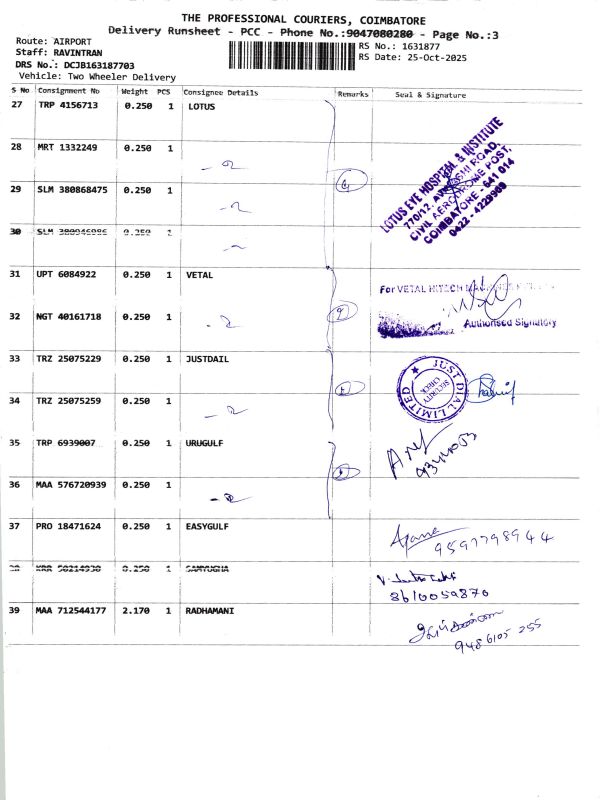 THE PROFESSIONAL COURIERS, COIMBATORE
Delivery Runsheet - PCC - Phone No.:9047080280 - Page No.:3
Route: AIRPORT
Staff: RAVINTRAN
DRS No.: DCJB163187703
Vehicle: Two Wheeler Delivery
RS No.: 1631877
RS Date: 25-Oct-2025
S No Consignment No Weight PCS Consignee Details Remarks Seal & Signature
27 TRP 4156713 0.250 1 LOTUS
28 MRT 1332249 0.250 1
29 SLM 380868475 0.250 1
LOTUS EYE HOSPITAL & INSTITUTE
770/12, AVINASHI ROAD,
CIVIL AERODROME POST,
COIMBATORE - 641 014
0422 - 4229999
30 SLM 380946986 0.250 1
31 UPT 6084922 0.250 1 VETAL
For VETAL HITECH
32 NGT 40161718 0.250 1
Authorised Signatory
33 TRZ 25075229 0.250 1 JUSTDAIL
JUST DIAL LIMITED
SECURITY
CHECK
34 TRZ 25075259 0.250 1
35 TRP 6939007 0.250 1 URUGULF
36 MAA 576720939 0.250 1
37 PRO 18471624 0.250 1 EASYGULF
9597798944
38 KRR 50214930 0.250 1 SAMYUGHA
8610059870
39 MAA 712544177 2.170 1 RADHAMANI
9486105 255